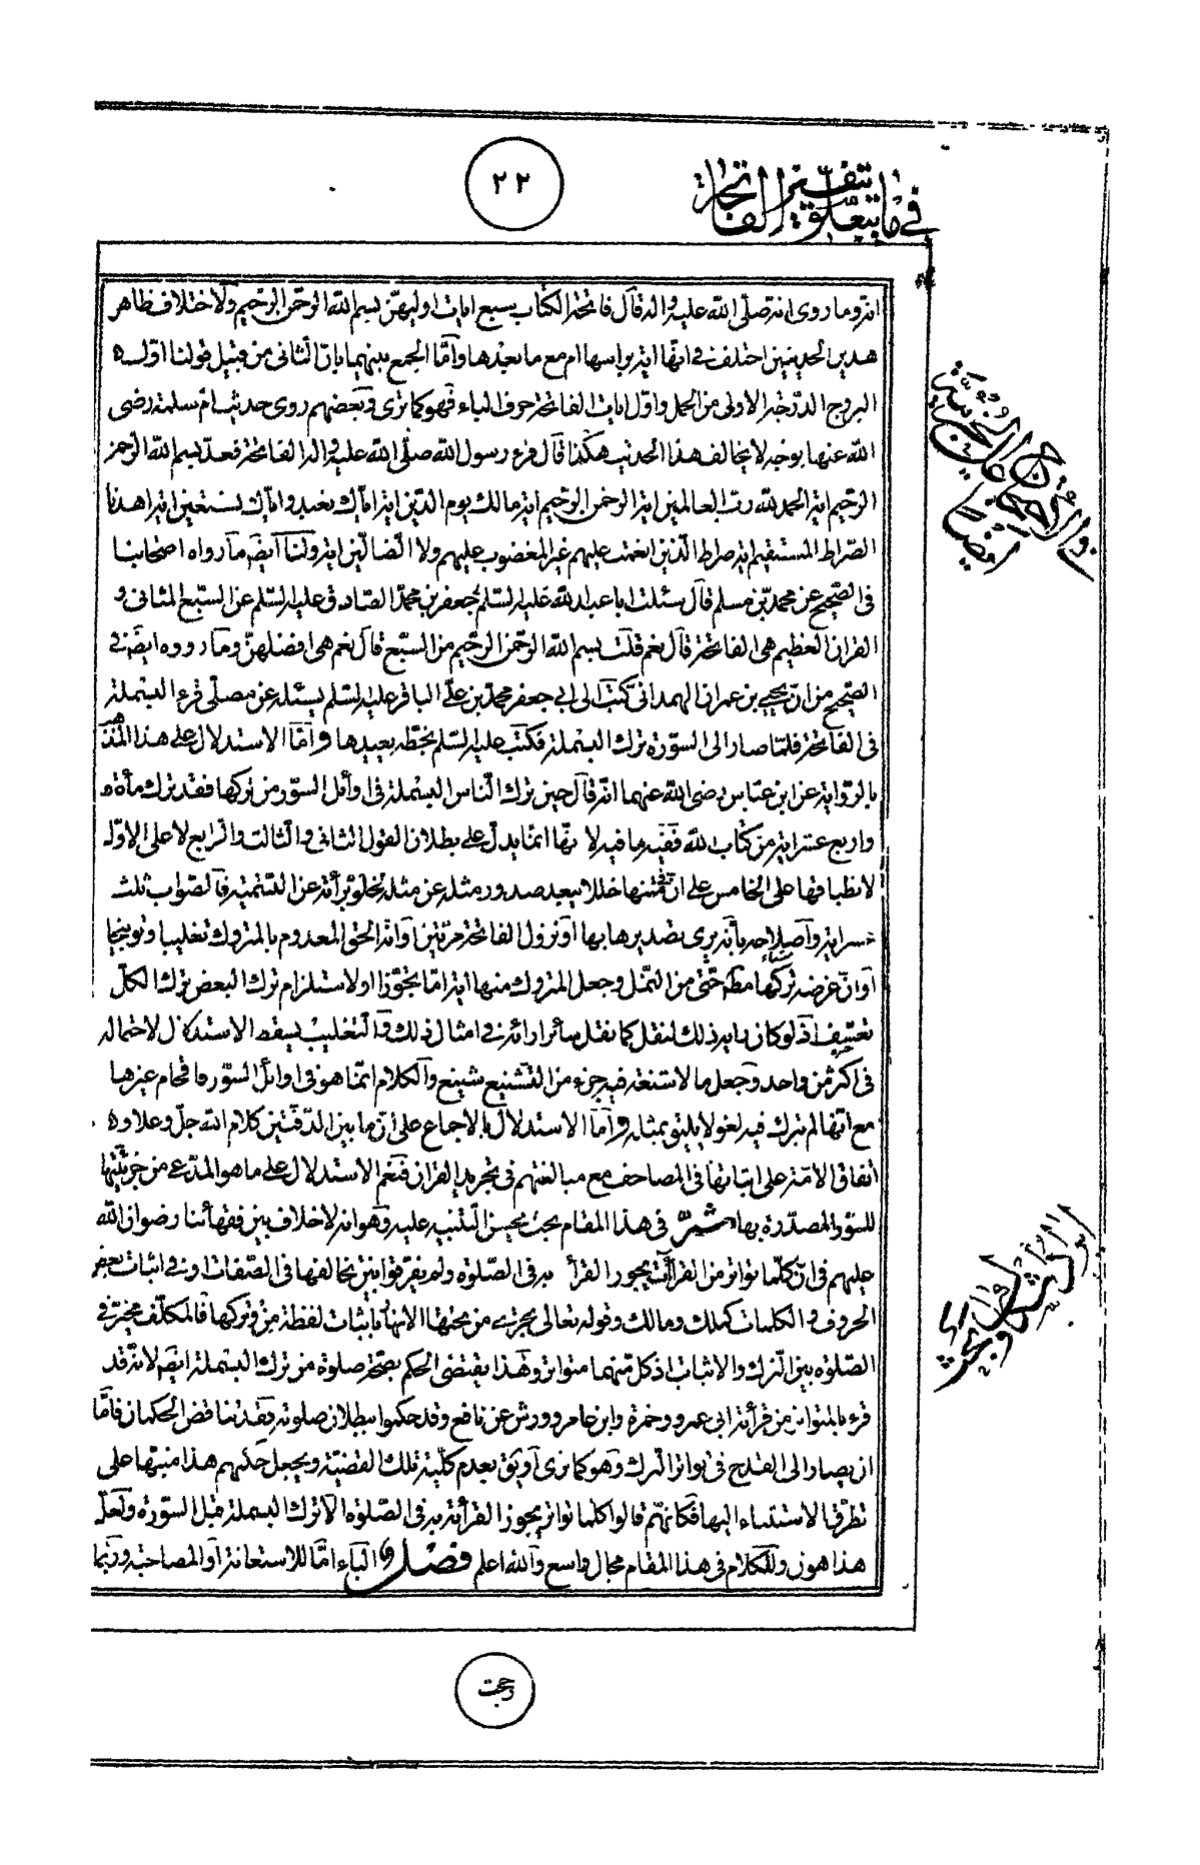 ٢٢
في ما يتعلق بتفسير الفاتحة
اية وما روى انه صلى الله عليه واله قال فاتحة الكتاب سبع ايات اوليهن بسم الله الرحمن الرحيم ولاختلاف ظاهر
هذين الحديثين اختلف في انها اية براسها ام مع ما بعدها وأما الجمع بينهما بان الثاني من قبيل قولنا اول
البروج الدرجة الاولى من الحمل واول ايات الفاتحة حرف الباء فهو كما ترى وبعضهم روى حديث ام سلمة رضى
الله عنها بوجه لا يخالف هذا الحديث هكذا قال قرء رسول الله صلى الله عليه واله الفاتحة فعد بسم الله الرحمن
الرحيم اية الحمد لله رب العالمين اية الرحمن الرحيم اية مالك يوم الدين اية اياك نعبد واياك نستعين اية اهدنا
الصراط المستقيم اية صراط الذين انعمت عليهم غير المغضوب عليهم ولا الضالين اية ولنا ايضا ما رواه اصحابنا
في الصحيح عن محمد بن مسلم قال سئلت ابا عبد الله عليه السلم جعفر بن محمد الصادق عليه السلم عن السبع المثاني و
القران العظيم هي الفاتحة قال نعم قلت بسم الله الرحمن الرحيم من السبع قال نعم هي افضلهن وما رووه ايضا في
الصحيح من ان يحيى بن عمران الهمداني كتب الى ابي جعفر محمد بن علي الباقر عليه السلم يسئله عن مصلى قرء البسملة
في الفاتحة فلما صار الى السورة ترك البسملة فكتب عليه السلم بخطه يعيدها وأما الاستدلال على هذا المذهب
بالرواية عن ابن عباس رضى الله عنهما انه قال حين ترك الناس البسملة في اوائل السور من تركها فقد ترك مأة و
واربع عشر اية من كتاب الله ففيه ما فيه لانها انما يدل على بطلان القول الثاني والثالث والرابع لا على الاول
لانطباقها على الخامس على ان تضمنها خللا يبعد صدور مثله عن مثله لخلو برأة عن التسمية فالصواب ثلث
عشر اية وأصلاحه بأنه يرى تصديرها بها او نزول الفاتحة مرتين او انه الحق المعدوم بالمتروك تغليبا وتوبيخا
او ان غرضه تركها مطلقا حتى من النمل وجعل المتروك منها اية اما تجوزا او لاستلزام ترك البعض ترك الكل
تعسف اذ لو كان رايه ذلك لنقل كما نقل سائر ارائه في امثال ذلك والتغليب يسقط الاستدلال لاحتماله
في اكثر من واحد وجعل ما لا شنعة فيه جزء من التشنيع شنيع والكلام انما هو في اوائل السور فاقحام غيرها
مع انها لم تترك فيه لغو لا يليق بمثله وأما الاستدلال بالاجماع على ان ما بين الدفتين كلام الله جل وعلا و
اتفاق الامة على اثباتها في المصاحف مع مبالغتهم في تجريد القران فنعم الاستدلال على ما هو المدعى من جزئيتها
للسور المصدرة بها ثم في هذا المقام بحث يحسن التنبيه عليه وهو انه لا خلاف بين فقهائنا رضوان الله
عليهم في ان كلما تواتر من القرائت يجوز القرأة به في الصلوة ولم يفرقوا بين تخالفها في الصفات او في اثبات بعض
الحروف والكلمات كملك ومالك وقوله تعالى تجري من تحتها الانهار باثبات لفظة من وتركها فالمكلف مخير في
الصلوة بين الترك والاثبات اذ كل منهما متواتر وهذا يقتضى الحكم بصحة صلوة من ترك البسملة ايضا لانه قد
قرء بالمتواتر من قرأة ابي عمرو وحمزة وابن عامر وورش عن نافع وقد حكموا ببطلان صلوته فقد تناقض الحكمان فاما
ان يصار الى القدح في تواتر الترك وهو كما ترى أو يق بعدم كلية تلك القضية ويجعل حكمهم هذا منبها على
تطرق الاستثناء اليها فكأنهم قالوا كلما تواتر يجوز القرأة به في الصلوة الا ترك البسملة قبل السورة ولعل
هذا هون وللكلام في هذا المقام مجال واسع والله اعلم فصل الباء اما للاستعانة او المصاحبة وربما
رجحت